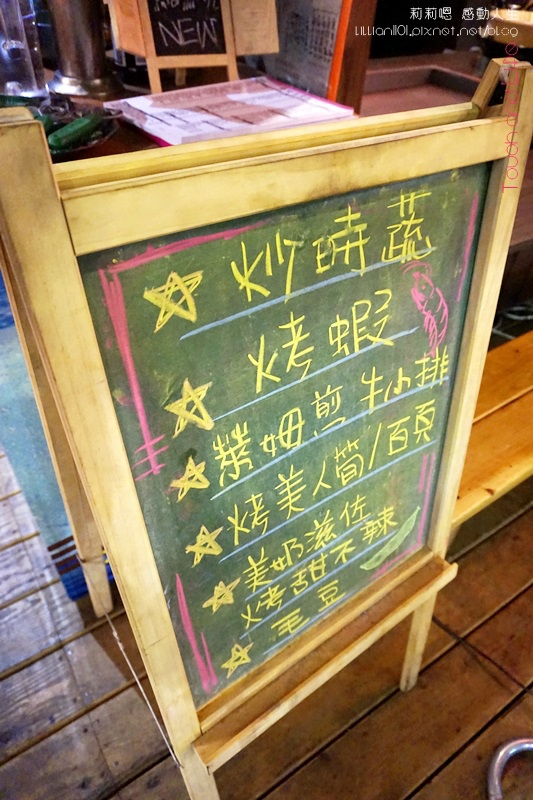 莉莉嗯 感動人生
LiLLian1101.pixnet.net/blog
NEW
炒時蔬
烤蝦
萊姆煎牛小排
烤美人筒/百頁
美奶滋佐
烤甜不辣
毛豆